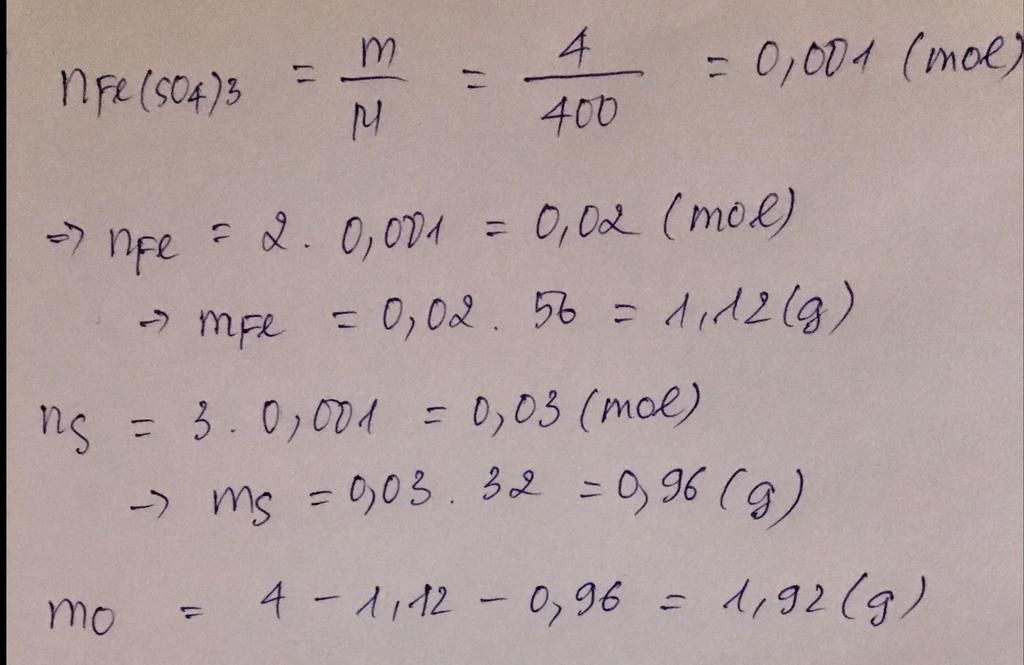 nFe(SO4)3 = m/M = 4/400 = 0,001 (mol)
=> nFe = 2 . 0,001 = 0,02 (mol)
-> mFe = 0,02 . 56 = 1,12 (g)
nS = 3 . 0,001 = 0,03 (mol)
-> mS = 0,03 . 32 = 0,96 (g)
mO = 4 - 1,12 - 0,96 = 1,92 (g)